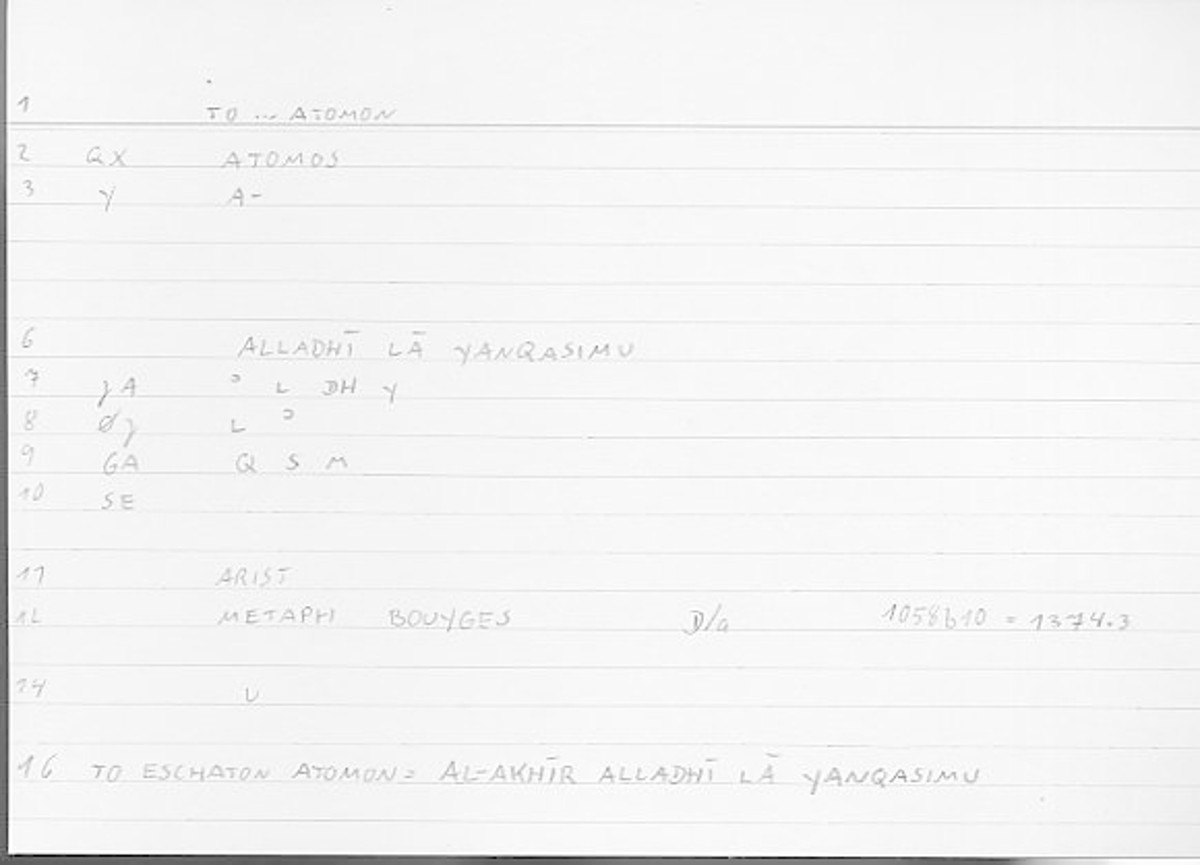 1 TO ... ATOMON
2 QX ATOMOS
3 Y A-
6 ALLADHĪ LĀ YANQASIMU
7 ʒA ʾ L DH Y
8 Øʒ L ʾ
9 GA Q S M
10 SE
11 ARIST
12 METAPH BOUYGES D/a 1058b10 = 1374.3
14 U
16 TO ESCHATON ATOMON = AL-AKHĪR ALLADHĪ LĀ YANQASIMU